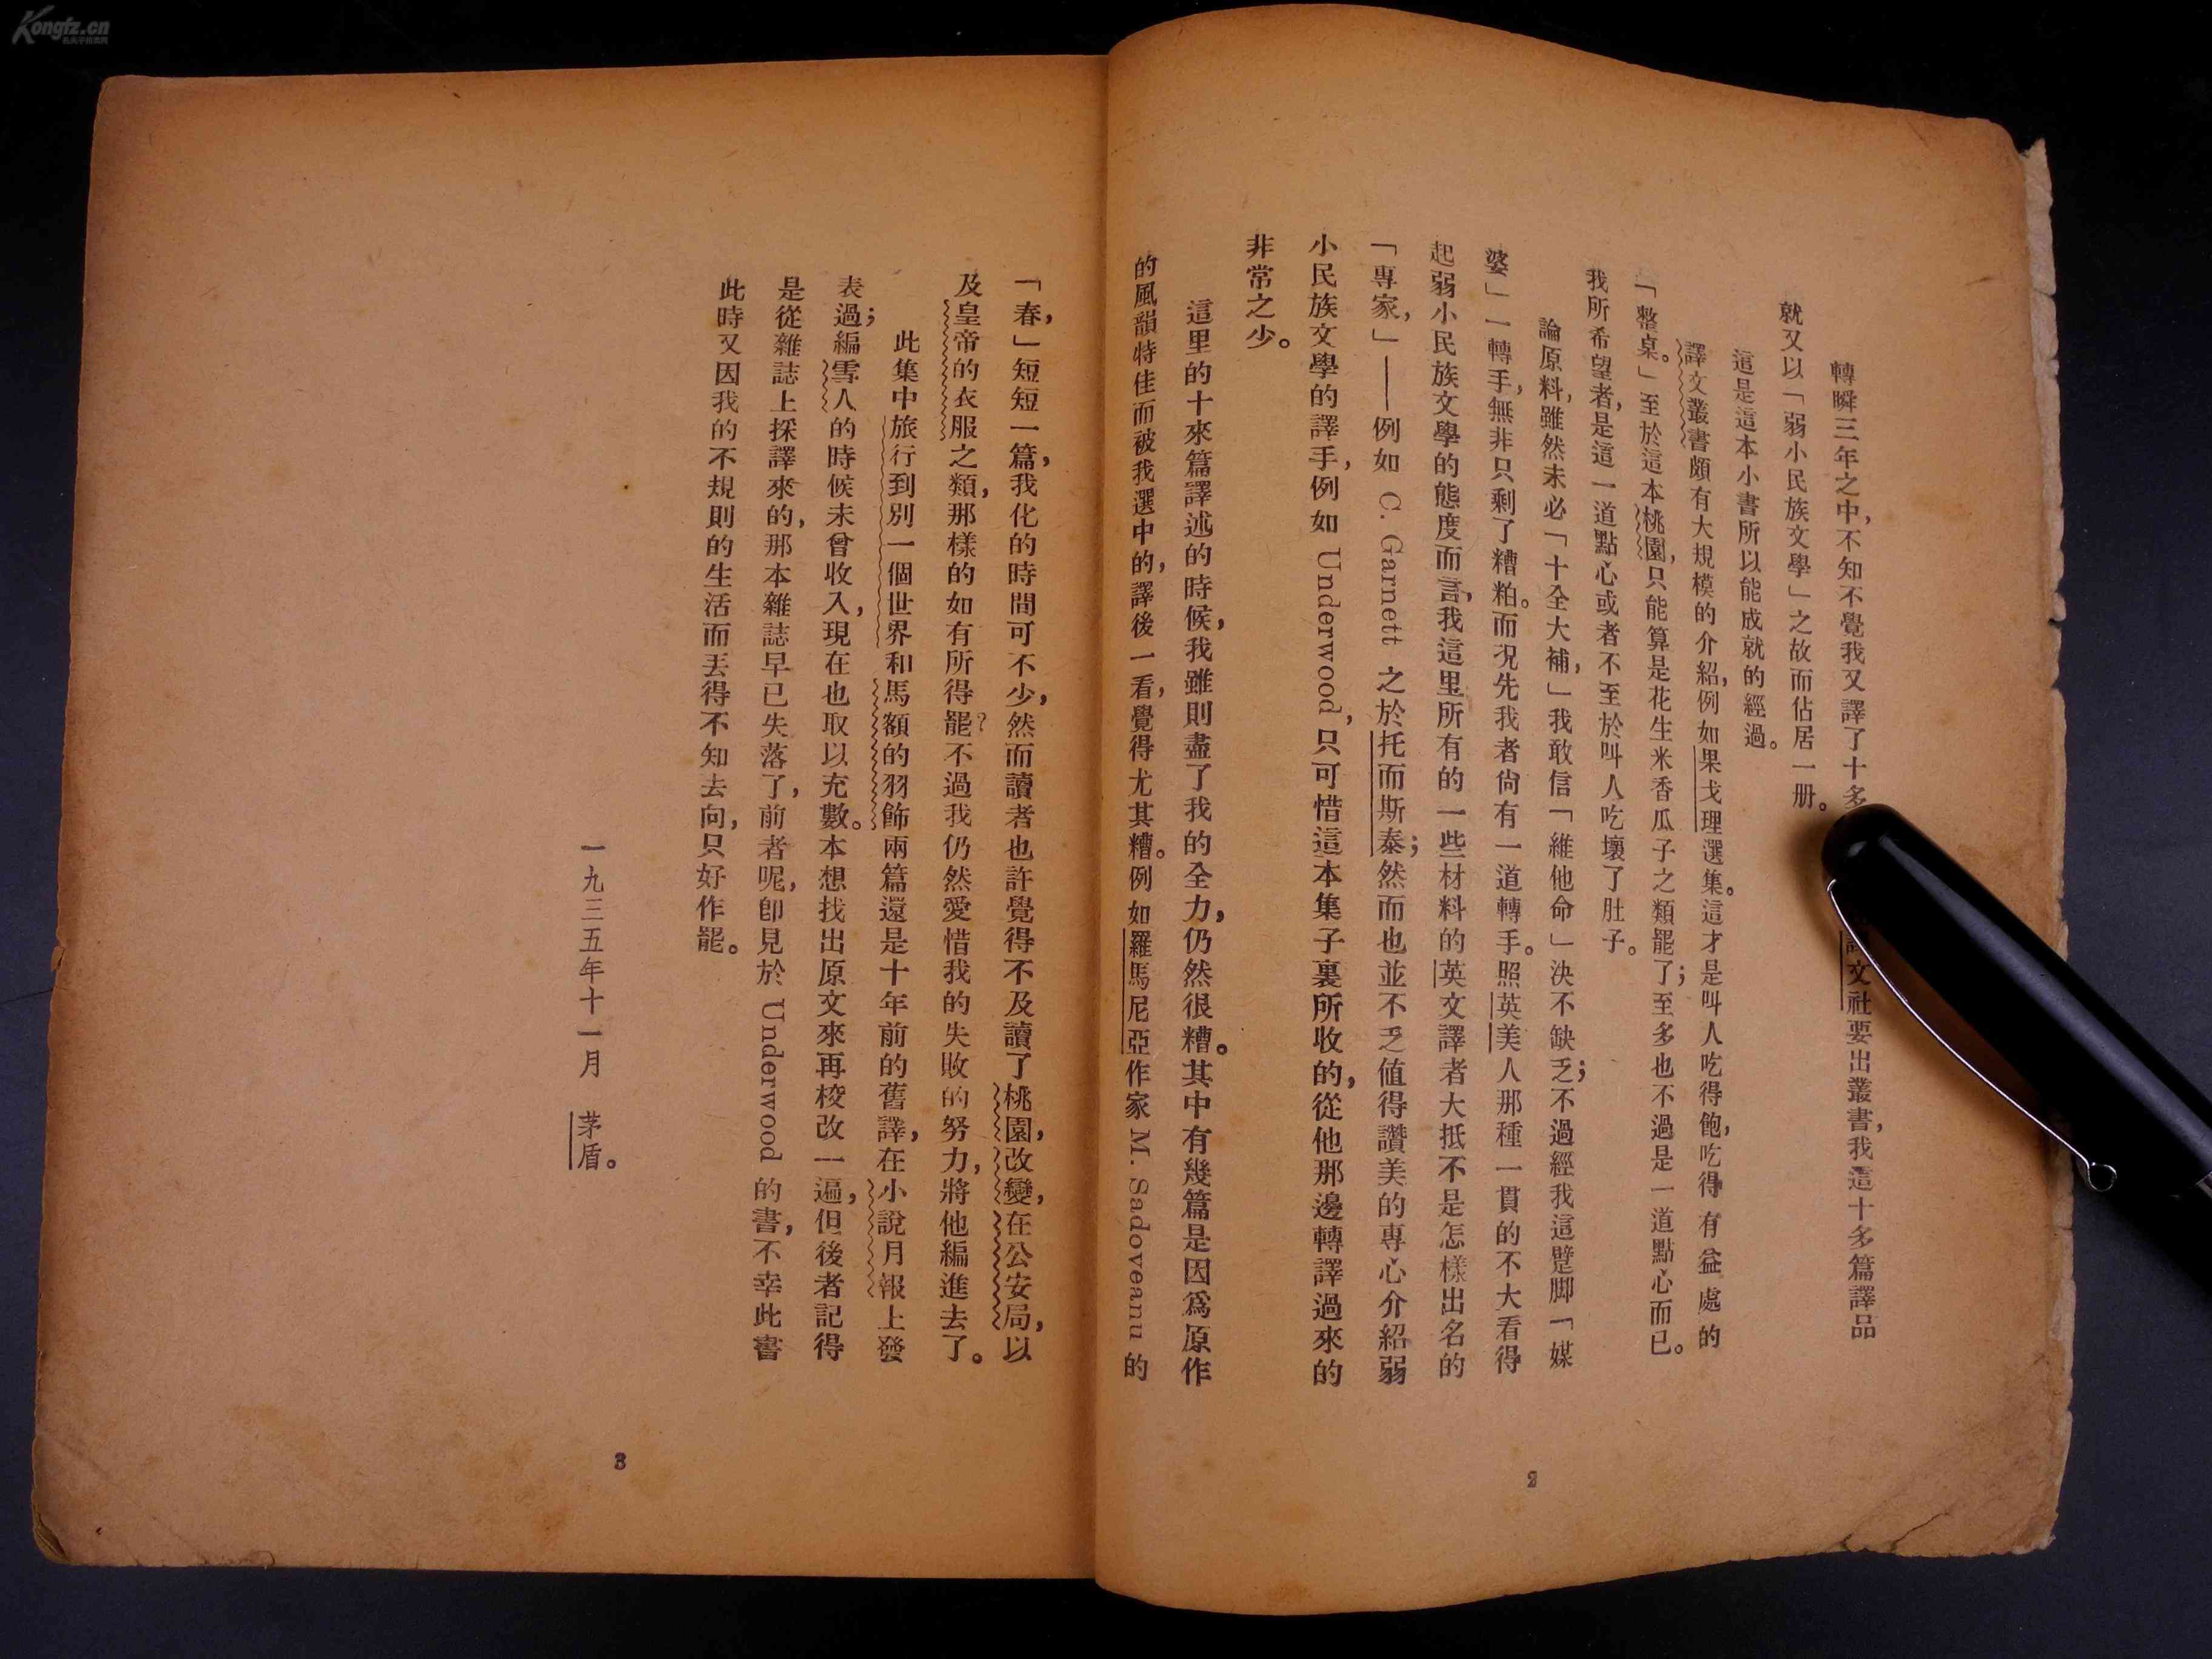 Kongfz.cn
轉瞬三年之中，不知不覺我又譯了十多
譯文社要出叢書，我這十多篇譯品
就又以「弱小民族文學」之故而佔居一册。
這是這本小書所以能成就的經過。
譯文叢書頗有大規模的介紹，例如果戈理選集。這才是叫人吃得飽，吃得有益處的
「整桌。」至於這本桃園，只能算是花生米香瓜子之類罷了；至多也不過是一道點心而已。
我所希望者，是這一道點心或者不至於叫人吃壞了肚子。
論原料，雖然未必「十全大補，」我敢信「維他命」決不缺乏；不過經我這蹩脚「媒
婆」一轉手，無非只剩了糟粕。而況先我者尙有一道轉手。照英美人那種一貫的不大看得
起弱小民族文學的態度而言，我這里所有的一些材料的英文譯者大抵不是怎樣出名的
「專家，」——例如 C. Garnett 之於托而斯泰；然而也並不乏值得讚美的專心介紹弱
小民族文學的譯手，例如 Underwood，只可惜這本集子裏所收的，從他那邊轉譯過來的
非常之少。
這里的十來篇譯述的時候，我雖則盡了我的全力，仍然很糟。其中有幾篇是因爲原作
的風韻特佳而被我選中的，譯後一看，覺得尤其糟。例如羅馬尼亞作家 M. Sadoveanu 的
2
「春，」短短一篇，我化的時間可不少，然而讀者也許覺得不及讀了桃園，改變，在公安局，以
及皇帝的衣服之類，那樣的如有所得罷？不過我仍然愛惜我的失敗的努力，將他編進去了。
此集中旅行到別一個世界和馬額的羽飾兩篇還是十年前的舊譯，在小說月報上發
表過；編雪人的時候未曾收入，現在也取以充數。本想找出原文來再校改一遍，但後者記得
是從雜誌上採譯來的，那本雜誌早已失落了，前者呢，卽見於 Underwood 的書，不幸此書
此時又因我的不規則的生活而丟得不知去向，只好作罷。
一九三五年十一月　茅盾。
3